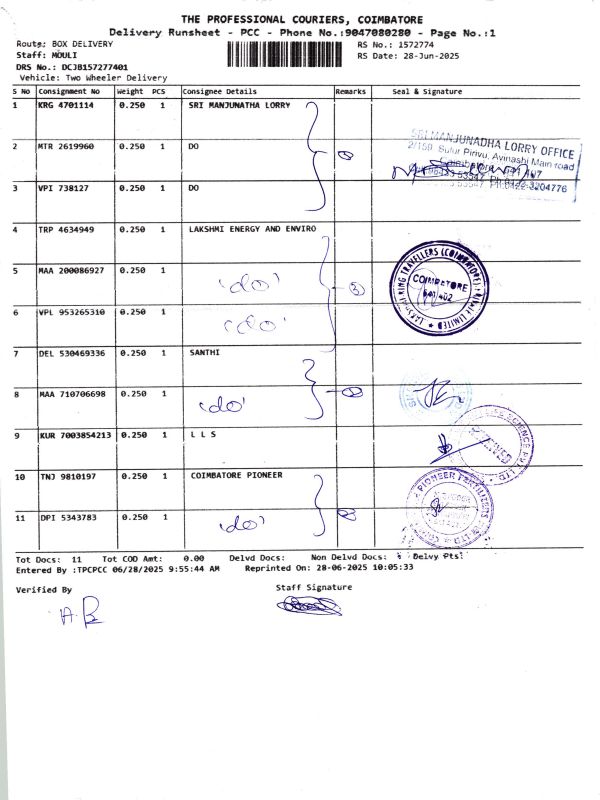 THE PROFESSIONAL COURIERS, COIMBATORE
Delivery Runsheet - PCC - Phone No.:9047080280 - Page No.:1
Route: BOX DELIVERY RS No.: 1572774
Staff: MOULI RS Date: 28-Jun-2025
DRS No.: DCJB157277401
Vehicle: Two Wheeler Delivery
S No Consignment No Weight PCS Consignee Details Remarks Seal & Signature
1 KRG 4701114 0.250 1 SRI MANJUNATHA LORRY
2 MTR 2619960 0.250 1 DO
SRI MANJUNADHA LORRY OFFICE
2/159, Sulur Pirivu, Avinashi Main road
Coimbatore - 641 407
3 VPI 738127 0.250 1 DO
4 TRP 4634949 0.250 1 LAKSHMI ENERGY AND ENVIRO
5 MAA 200086927 0.250 1 'do'
COIMBATORE
641 402
6 VPL 953265310 0.250 1 'do'
7 DEL 530469336 0.250 1 SANTHI
8 MAA 710706698 0.250 1 'do'
9 KUR 7003854213 0.250 1 L L S
RECEIVED
10 TNJ 9810197 0.250 1 COIMBATORE PIONEER
PIONEER FERTILIZERS
11 DPI 5343783 0.250 1 'do'
Tot Docs: 11 Tot COD Amt: 0.00 Delvd Docs: Non Delvd Docs: Delvy Pts:
Entered By :TPCPCC 06/28/2025 9:55:44 AM Reprinted On: 28-06-2025 10:05:33
Verified By Staff Signature